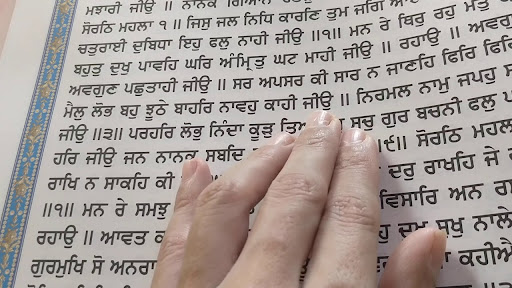 ਮਝਾਰੀ ਜੀਉ ॥ ਨਾਨਕ ਗਿਆਨ
ਸੋਰਠਿ ਮਹਲਾ ੧ ॥ ਜਿਸੁ ਜਲ ਨਿਧਿ ਕਾਰਣਿ ਤੁਮ ਜਗਿ ਆਏ
ਚਤੁਰਾਈ ਦੁਬਿਧਾ ਇਹੁ ਫਲੁ ਨਾਹੀ ਜੀਉ ॥੧॥ ਮਨ ਰੇ ਥਿਰੁ ਰਹੁ ਮਤੁ
ਬਹੁਤੁ ਦੁਖੁ ਪਾਵਹਿ ਘਰਿ ਅੰਮ੍ਰਿਤੁ ਘਟ ਮਾਹੀ ਜੀਉ ॥ ਰਹਾਉ ॥ ਅਵਗੁਣ
ਅਵਗੁਣ ਪਛੁਤਾਹੀ ਜੀਉ ॥ ਸਰ ਅਪਸਰ ਕੀ ਸਾਰ ਨ ਜਾਣਹਿ ਫਿਰਿ ਫਿਰਿ
ਮੈਲੁ ਲੋਭ ਬਹੁ ਝੂਠੇ ਬਾਹਰਿ ਨਾਵਹੁ ਕਾਹੀ ਜੀਉ ॥ ਨਿਰਮਲ ਨਾਮੁ ਜਪਹੁ
ਜੀਉ ॥੩॥ ਪਰਹਰਿ ਲੋਭੁ ਨਿੰਦਾ ਕੂੜੁ ਸਚੁ ਗੁਰ ਬਚਨੀ ਫਲੁ
ਹਰਿ ਜੀਉ ਜਨ ਨਾਨਕ ਸਬਦਿ ॥੯॥ ਸੋਰਠਿ ਮਹਲਾ
ਰਾਖਿ ਨ ਸਾਕਹਿ ਕੀ ਦਰੁ ਰਾਖਹਿ ਜੇ
॥੧॥ ਮਨ ਰੇ ਸਮਝੁ ਵਿਸਾਰਿ ਅਨ
ਰਹਾਉ ॥ ਆਵਤ ਹਮ ਸੁਖੁ
ਗੁਰਮੁਖਿ ਸੋ ਕਹੀਐ